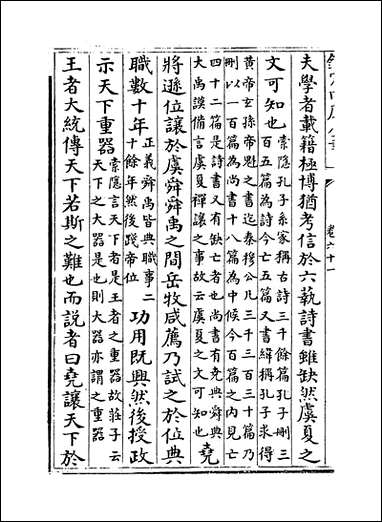 卷六十一
夫學者載籍極博猶考信於六蓺詩書雖缺然虞夏之
文可知也
索隱孔子系家稱古詩三千餘篇孔子刪三
百五篇為詩今亡五篇又書緯稱孔子求得
黃帝玄孫帝魁之書迄秦穆公凡三千三百三十篇乃
刪以一百篇為尚書十八篇為中候今百篇之內見亡
四十二篇是詩書又有缺亡者也尚書有堯典舜典
大禹謨備言虞夏禪讓之事故云虞夏之文可知也
堯
將遜位讓於虞舜舜禹之間岳牧咸薦乃試之於位典
職數十年
正義舜禹皆典職事二
十餘年然後踐帝位
功用既興然後授政
示天下重器
索隱言天下者是王者之重器故莊子云
天下之大器是也則大器亦謂之重器
王者大統傳天下若斯之難也而說者曰堯讓天下於